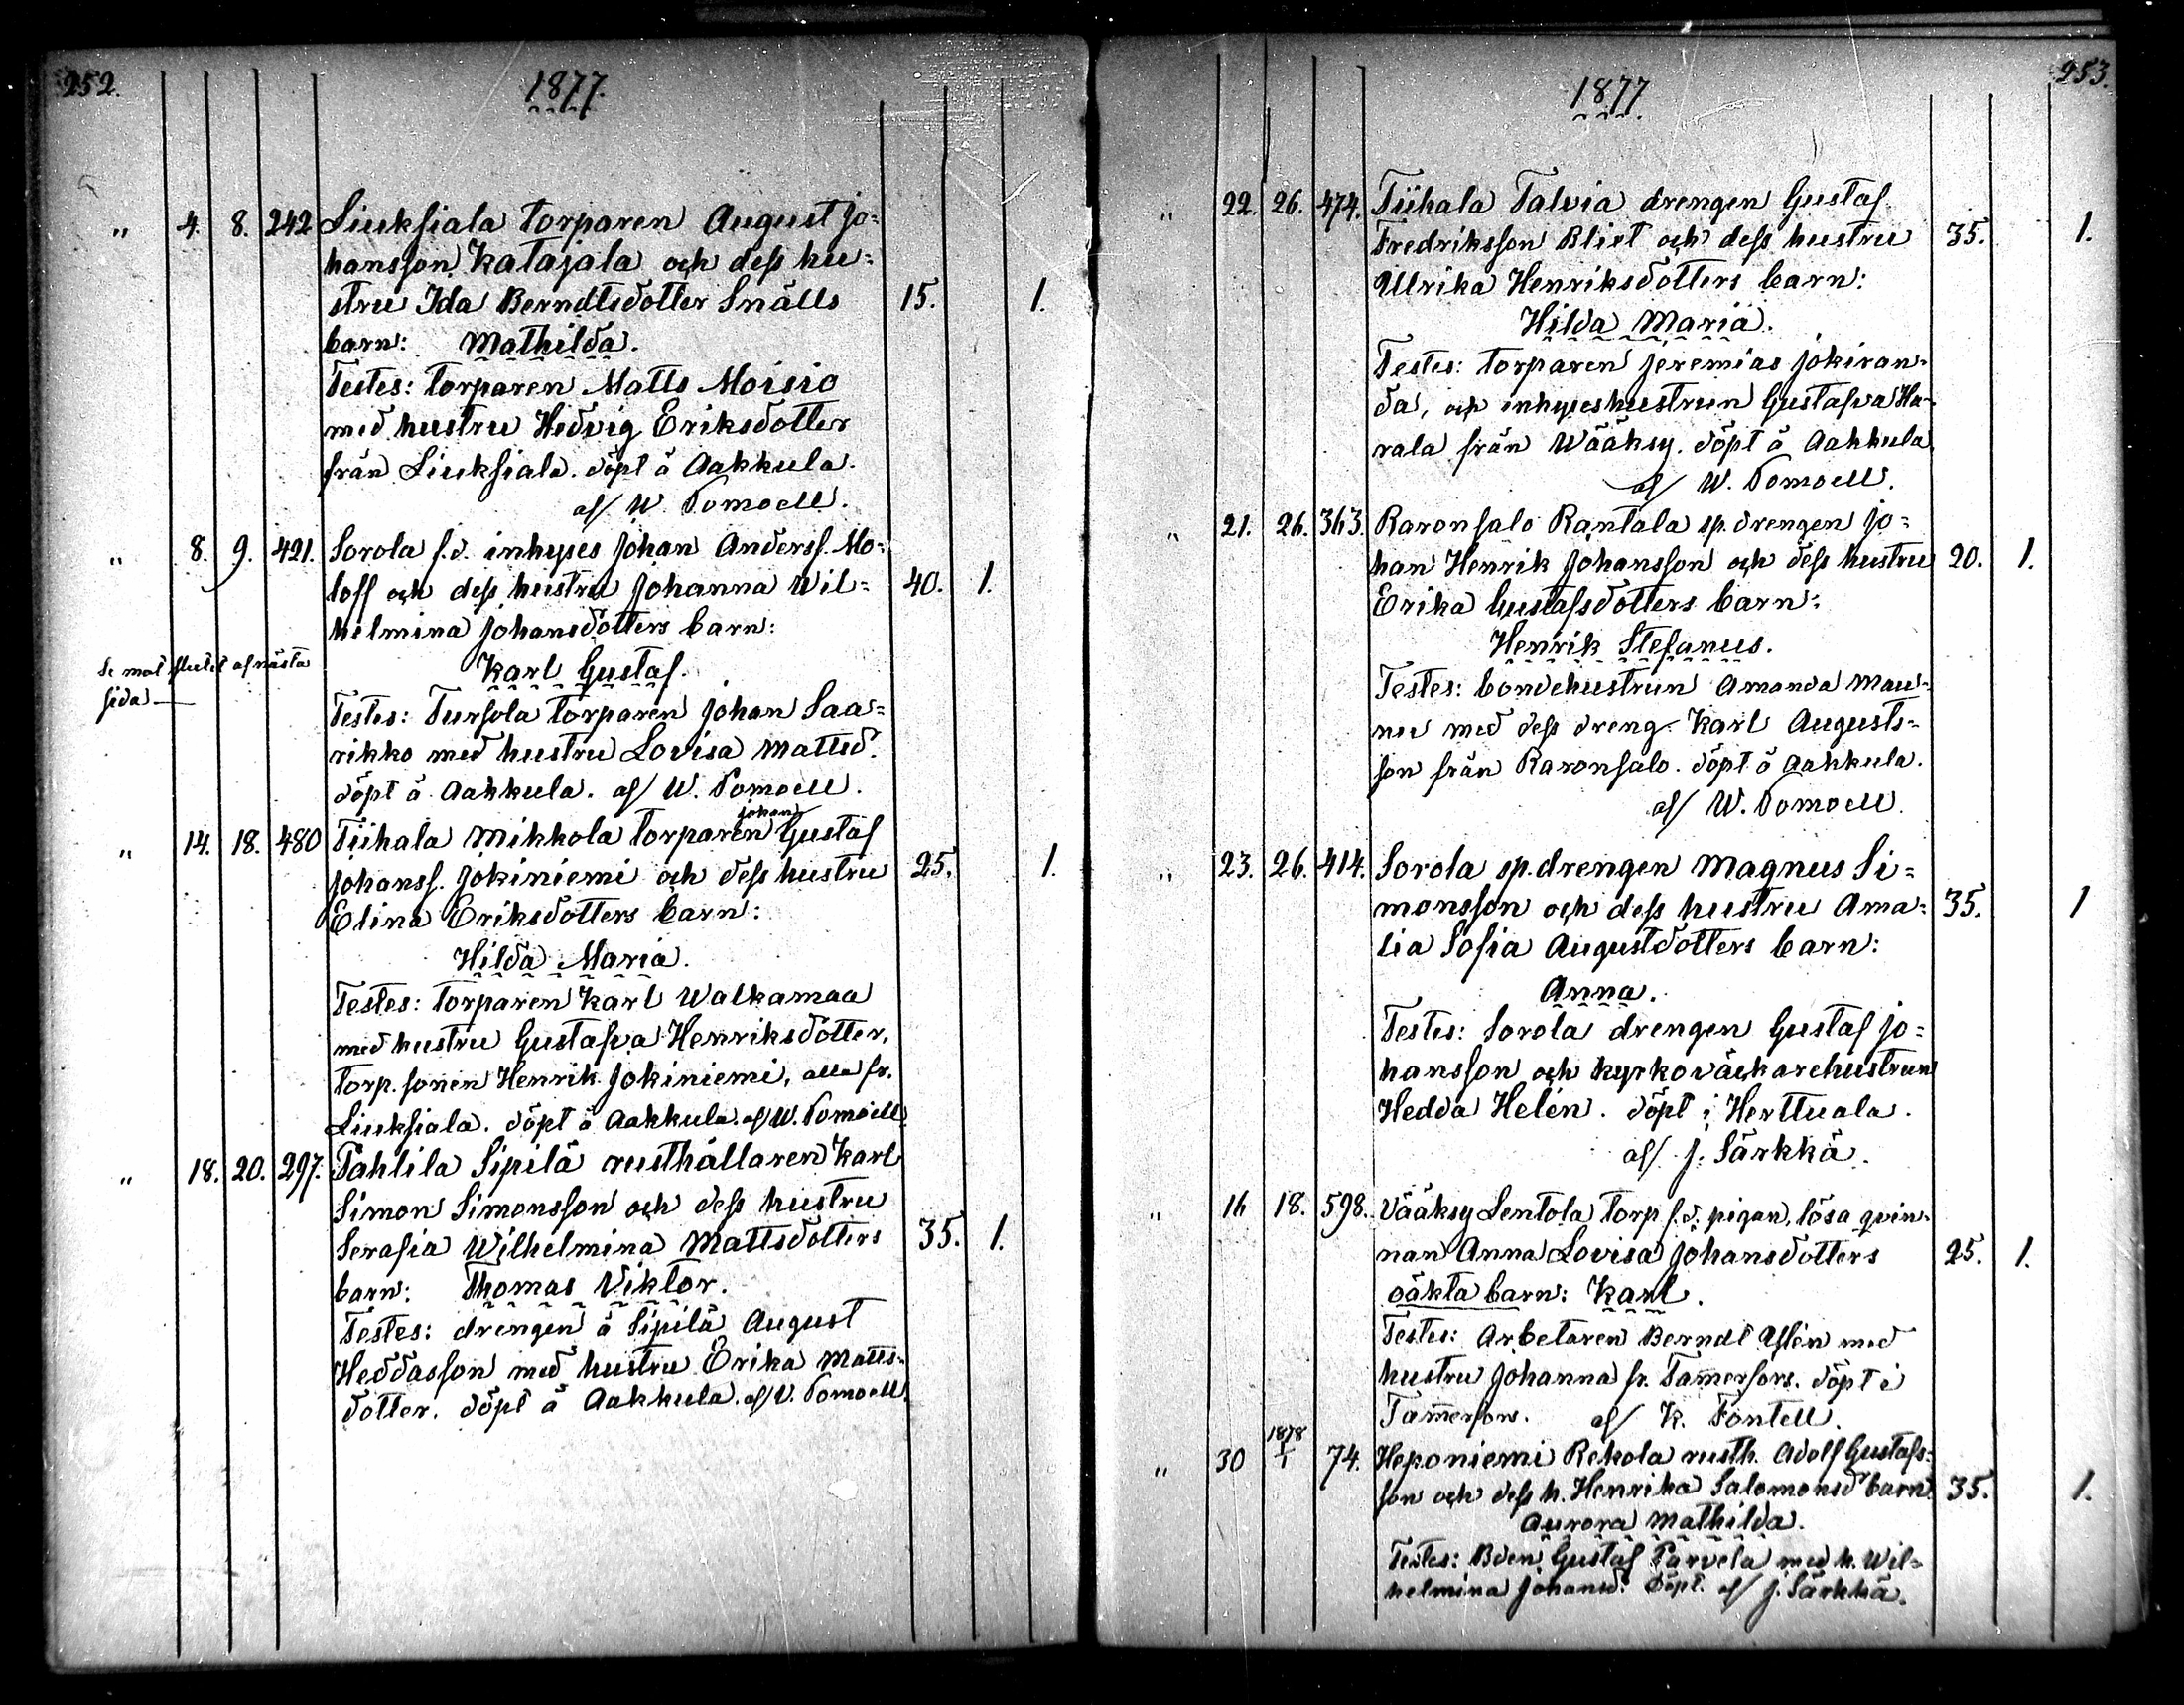 252.
1877.
" 4. 8. 242 Liuksiala torparen August Jo=
hansson Katajala och dess hu=
stru Ida Berndtsdotter Snälls 15. 1.
barn: Mathilda.
Testes: torparen Matts Moisio
med hustru Hedvig Eriksdotter
från Liuksiala. döpt å Aakkula.
af/ W. Pomoell.
" 8. 9. 421. Sorola f.d. inhyses Johan Anderss. Mo=
loff och dess hustru Johanna Wil= 40. 1.
helmina Johansdotters barn:
Se mot slutet af nästa
sida
Karl Gustaf.
Testes: Tursola torparen Johan Saa=
rikko med hustru Lovisa Mattsd.
döpt å Aakkula. af/ W. Pomoell.
Johan
" 14. 18. 480 Tiihala Mikkola torparen Gustaf
Johanss. Jokiniemi och dess hustru 25. 1.
Elina Eriksdotters barn:
Hilda Maria.
Testes: torparen Karl Walkamaa
med hustru Gustafva Henriksdotter,
torp. sonen Henrik Jokiniemi, alla fr.
Liuksiala. döpt å Aakkula. af/ W. Pomoell.
" 18. 20. 297. Tahlila Sipilä rusthållaren Karl
Simon Simonsson och dess hustru
Serafia Wilhelmina Mattsdotters 35. 1.
barn: Thomas Viktor.
Testes: drengen å Sipilä August
Heddasson med hustru Erika Matts=
dotter. döpt å Aakkula. af/ W. Pomoell.
253.
1877
" 22. 26. 474. Tiihala Talvia drengen Gustaf
Fredriksson Blixt och dess hustru 35. 1.
Ullrika Henriksdotters barn:
Hilda Maria.
Testes: torparen Jeremias Jokiran=
da, och inhyseshustrun Gustafva Ha=
rala från Wääksy. döpt å Aakkula
af/ W. Pomoell.
" 21. 26. 363. Raronsalo Rantala sp. drengen Jo=
han Henrik Johansson och dess hustru 20. 1.
Erika Gustafsdotters barn:
Henrik Stefanus.
Testes: bondehustrun Amanda Mau=
nu med dess dreng Karl Augusts=
son från Raronsalo. döpt å Aakkula.
af/ W. Pomoell.
" 23. 26. 414. Sorola sp. drengen Magnus Si=
monsson och dess hustru Ama= 35. 1
lia Sofia Augustdotters barn:
Anna.
Testes: Sorola drengen Gustaf Jo=
hansson och kyrkoväckarehustrun
Hedda Helén. döpt i Herttuala.
af/ J. Särkkä.
" 16 18. 598. Vääksy Lentola torp f.d. pigan, lösa qvin=
nan Anna Lovisa Johansdotters 25. 1.
oäkta barn: Karl.
Testes: Arbetaren Berndt med
hustru Johanna fr. Tamerfors. döpt i
Tamerfors. af/ K. Fontell.
" 30 1878 1/1 74. Heponiemi Rekola rusth. Adolf Gustafs=
son och dess h. Henrika Salomonsd barn 35. 1.
Aurora Mathilda.
Testes: Bden Gustaf Parvela med h. Wil=
helmina Johansd. Döpt. af/ J. Särkkä.